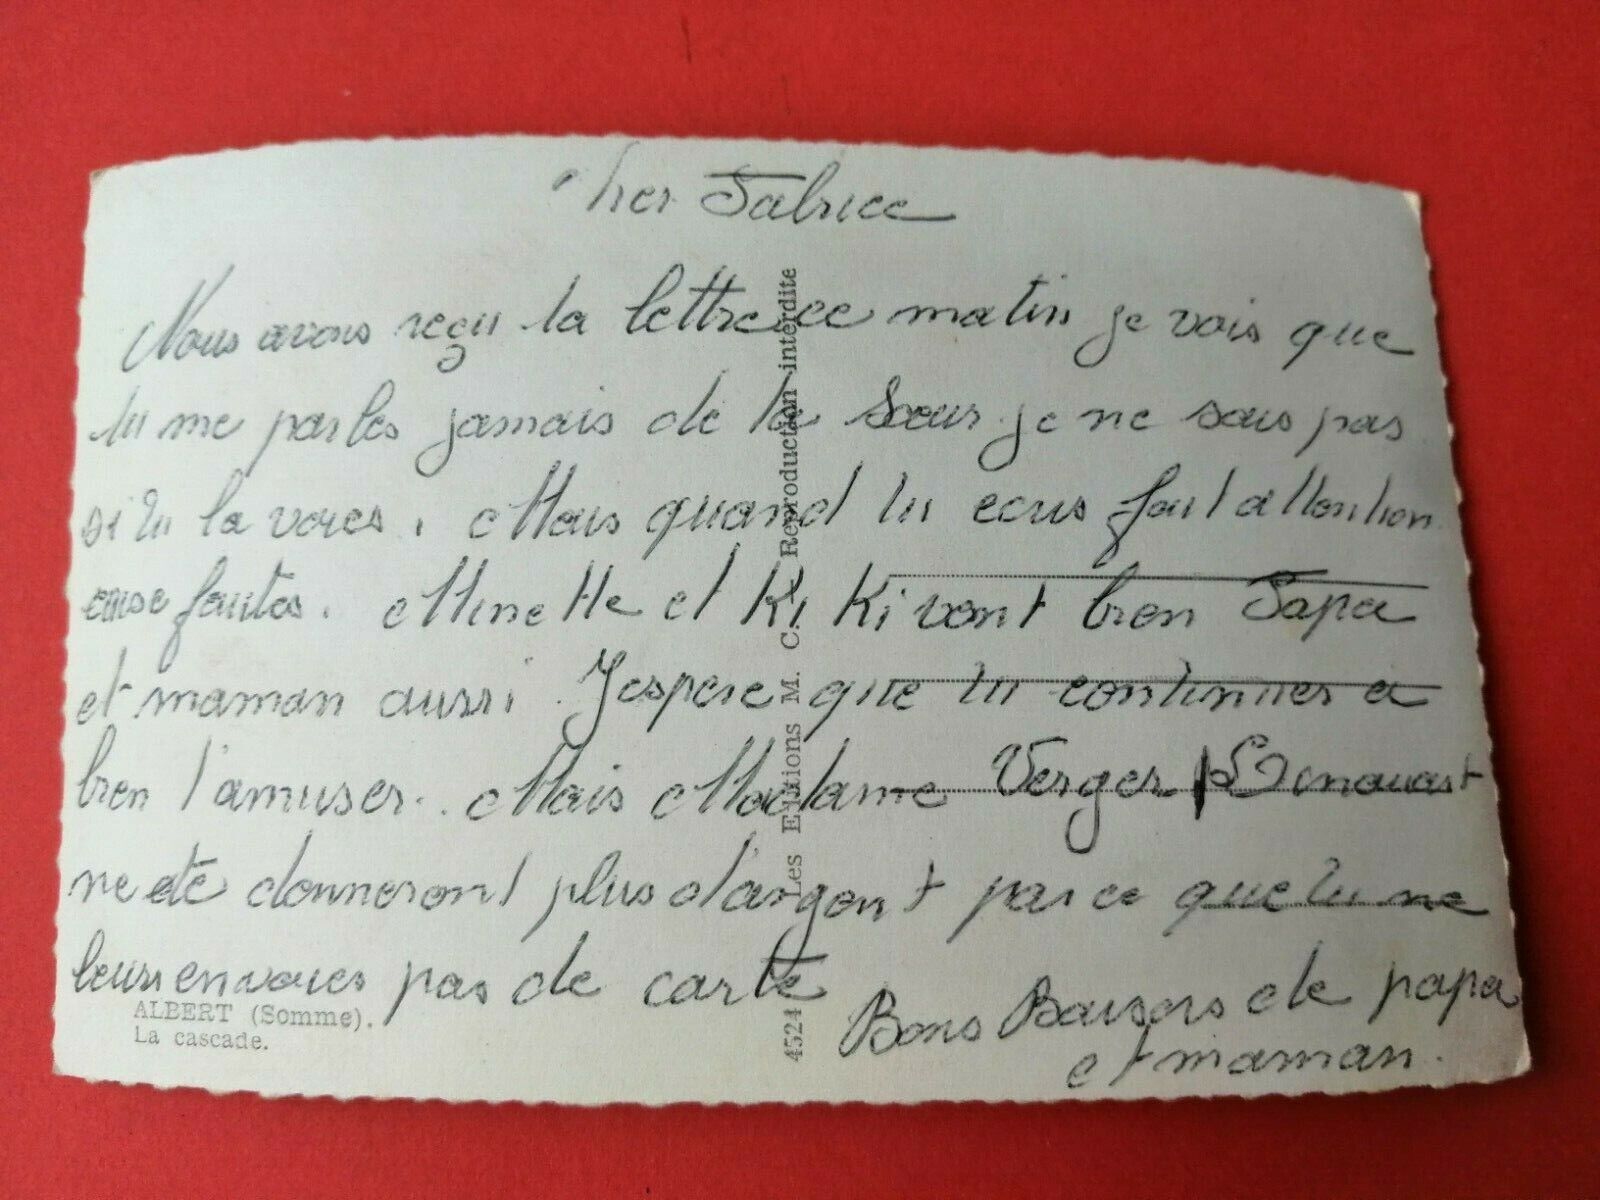 Cher Fabrice
Nous avons reçu ta lettre ce matin je vois que
tu me parles jamais de ta Sœur. je ne sais pas
si tu la voies. Mais quand tu ecris fait attention
fautes. Minette et Ki Ki vont bien Papa
et maman aussi. J'espere que tu continues a
bien t'amuser. Mais Madame Verger
ne te donneront plus d'argent par ce que tu ne
leurs envoies pas de carte
Bons Baisers de papa
et maman.
ALBERT (Somme).
La cascade.
4524 Les Editions M. C. Reproduction interdite